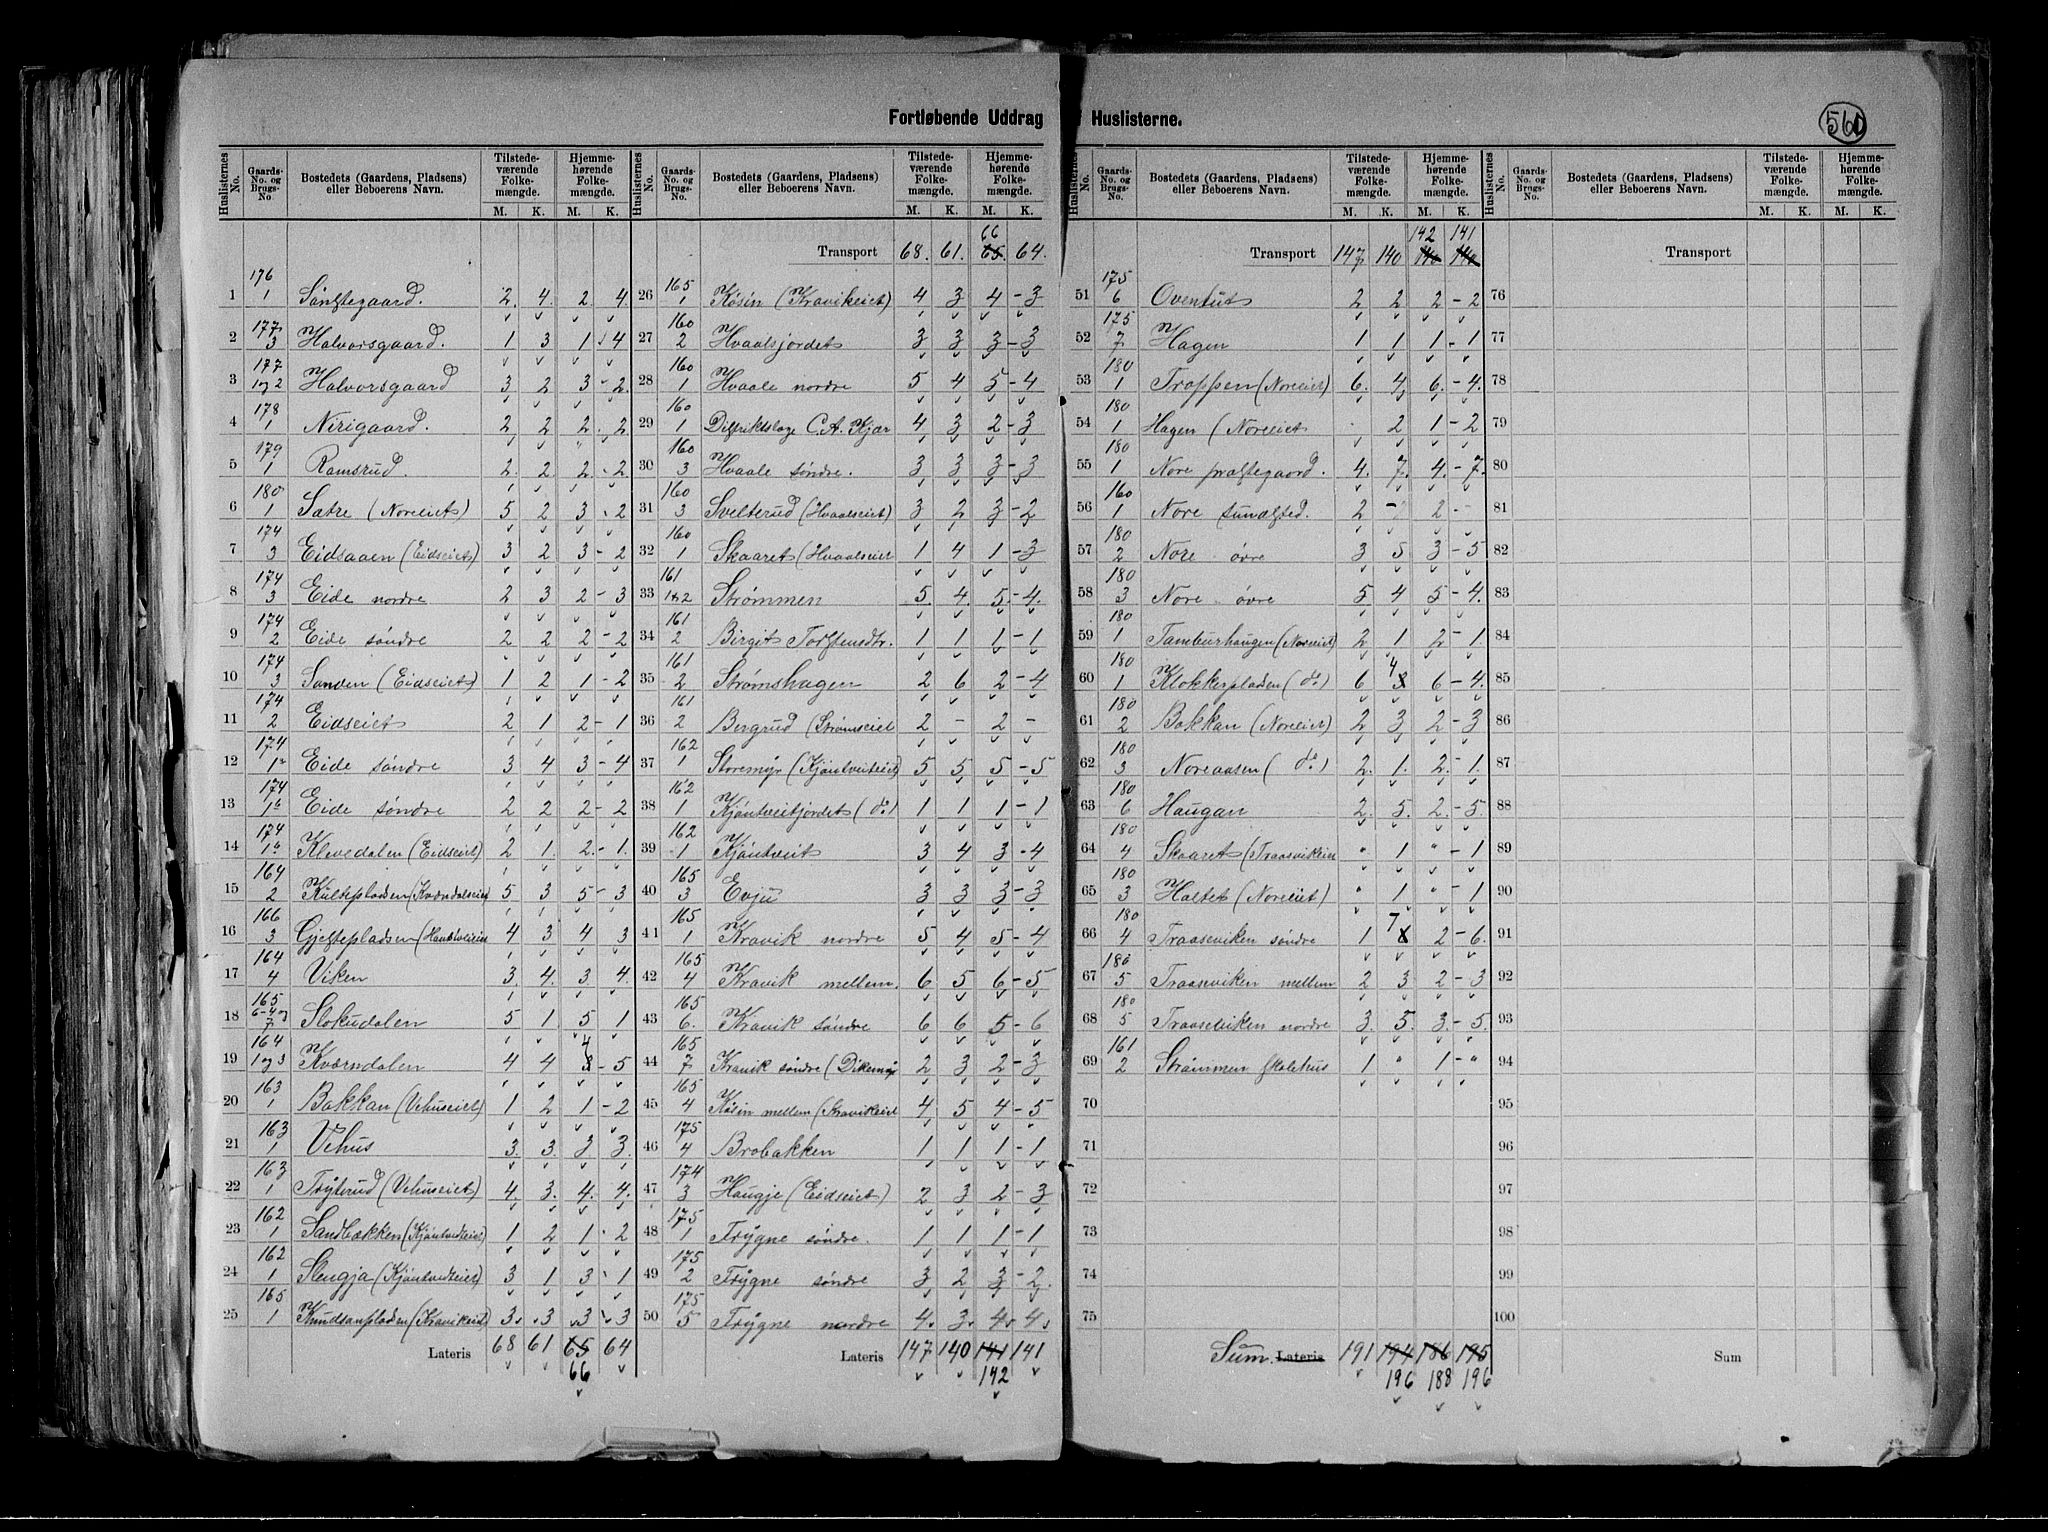 Fortløbende Uddrag
Huslisterne.
560
Huslisternes No.
Gaards-No. og Brugs-No.
Bostedets (Gaardens, Pladsens) eller Beboerens Navn.
Tilstedeværende Folkemængde.
Hjemmehørende Folkemængde.
M. K. M. K.
1 176/1 Söngstegaard. 2. 4. 2. 4.
2 177/3 Halvorsgaard. 1 3 1 4
3 177/1og2 Halvorsgaard 3 2 3 - 2.
4 178/1 Nirigaard. 2 2 2. 2
5 179/1 Ramsrud. 2. 2 2. - 2
6 180/1 Sætre (Noreeiet) 5 2 3 - 2
7 174/3 Eidsaaen (Eidseiet) 3 2 3 - 2
8 174/3 Eide nordre 2 3 2 - 3
9 174/2 Eide søndre 2 2 2 - 2
10 174/3 Sanden (Eidseiet) 1 2 1 - 2
11 174/2 Eidseiet 2 1 2 - 1
12 174/1a Eide søndre 3 4 3 - 4
13 174/1b Eide søndre 2 2 2 - 2
14 174/1b Klevedalen (Eidseiet) 2 1. 2. - 1.
15 164/2 5 3 5 - 3
16 166/3 4 3 4 3
17 164/4 Viken 3. 4. 3. 4.
18 165/6-4og7 Slokudalen 5 1 5 1
19 164/1og3 Kværndalen 4 4 3 4 - 5
20 163/1 Bakkan (Vehuseiet) 1 2 1 - 2
21 163/1 Vehus 3. 3. 3 3.
22 163/1 Trÿterud (Vehuseiet) 4. 3. 4. 4.
23 162/1 Sandbækken (Kjöntveiteiet) 1 2 1 - 2
24 162/1 Slengja (Kjöntveiteiet) 3 1 3 - 1
25 165/1 Knudsenpladsen (Kravikeiet) 3. 3 3 3
Lateris 68 61 65 66 64
Huslisternes No.
Gaards-No. og Brugs-No.
Bostedets (Gaardens, Pladsens) eller Beboerens Navn.
Tilstedeværende Folkemængde.
Hjemmehørende Folkemængde.
M. K. M. K.
Transport 68. 61. 65. 66 64.
26 165/1 Kösin (Kravikeiet) 4 3 4 - 3
27 160/2 Hvaalsjordet 3 3 3 - 3
28 160/1 Hvaale nordre 5 4 5 - 4
29 160/1 Distriktslæge C. A. Kjær 4 3 2 - 3
30 160/3 Hvaale søndre. 3 3 3 - 3
31 160/3 Svelterud (Hvaalseiet) 3 2 3 - 2
32 160/1 Skaaret (Hvaalseiet 1 4 1 - 3
33 161/1&2 Strømmen 5. 4. 5. - 4.
34 161/2 Birgit Torstensdtr. 1 1 1 - 1
35 161/2 Strømshagen 2 6 2 - 4
36 161/2 Bergrud (Strömseiet 2 - 2 -
37 162/1 Storemÿr (Kjöntveiteiet) 5 5 5 - 5
38 162/1 Kjöntveitjordet (do) 1 1 1 - 1
39 162/1 Kjöntveit 3 4 3 - 4
40 165/3 Evju 3 3 3 - 3
41 165/1 Kravik nordre 5 4 5 - 4
42 165/4 Kravik mellem. 6 5 6 - 5
43 165/6. Kravik søndre 6 6 5 - 6
44 165/7 Kravik søndre (Dikemyr 2 3 2 - 3
45 165/4 Kösin mellem (Kravikeiet 4 5 4 - 5
46 175/4 Brobakken 1 1 1 - 1
47 174/3 Haugje (Eidseiet) 2 3 2 - 3
48 175/1 Frÿgne søndre. 1 1 1 - 1
49 175/2 Frÿgne søndre 3 2 3 - 2.
50 175/5 Frÿgne nordre 4. 3. 4. 4.
Lateris 147 140 141 142 141
Huslisternes No.
Gaards-No. og Brugs-No.
Bostedets (Gaardens, Pladsens) eller Beboerens Navn.
Tilstedeværende Folkemængde.
Hjemmehørende Folkemængde.
M. K. M. K.
Transport 147 140 142 140 141 140
51 175/6 Oventut 2 2 2 - 2
52 175/7 Hagen 1 1 1 - 1
53 180/1 Troppen (Noreeiet) 6. 4. 6. - 4.
54 180/1 Hagen (Noreeiet 2 1 - 2
55 180/1 Nore præstegaard. 4. 7. 4. - 7.
56 160/1 Nore sundsted. 2 - 2 -
57 180/2 Nore øvre 3 5 3 - 5
58 180/3 Nore øvre 5 4 5 - 4.
59 180/1 Tamburhaugen (Noreeiet) 2 1 2 - 1.
60 180/1 Klokkerpladsen (do) 6 3 4 6 - 4.
61 180/2 Bakkan (Noreeiet) 2 3 2 - 3
62 180/3 Noreaasen (do) 2. 1. 2. - 1.
63 180/6 Haugan 2. 5. 2. - 5.
64 180/4 Skaaret (Traasvikeien " 1 " - 1
65 180/3 Haltet (Noreeiet) " 1 " - 1
66 180/4 Traaseviken søndre 1 8 7 2 - 6.
67 180/5 Traaseviken mellem 2 3 2 - 3
68 180/5 Traaseviken nordre 3. 5. 3. - 5.
69 161/2 Strömmen skolehus 1 " 1 - "
70
71
72
73
74
75
Sum. Lateris 191 194 196 186 188 195 196
Huslisternes No.
Gaards-No. og Brugs-No.
Bostedets (Gaardens, Pladsens) eller Beboerens Navn.
Tilstedeværende Folkemængde.
Hjemmehørende Folkemængde.
M. K. M. K.
Transport
76
77
78
79
80
81
82
83
84
85
86
87
88
89
90
91
92
93
94
95
96
97
98
99
100
Sum